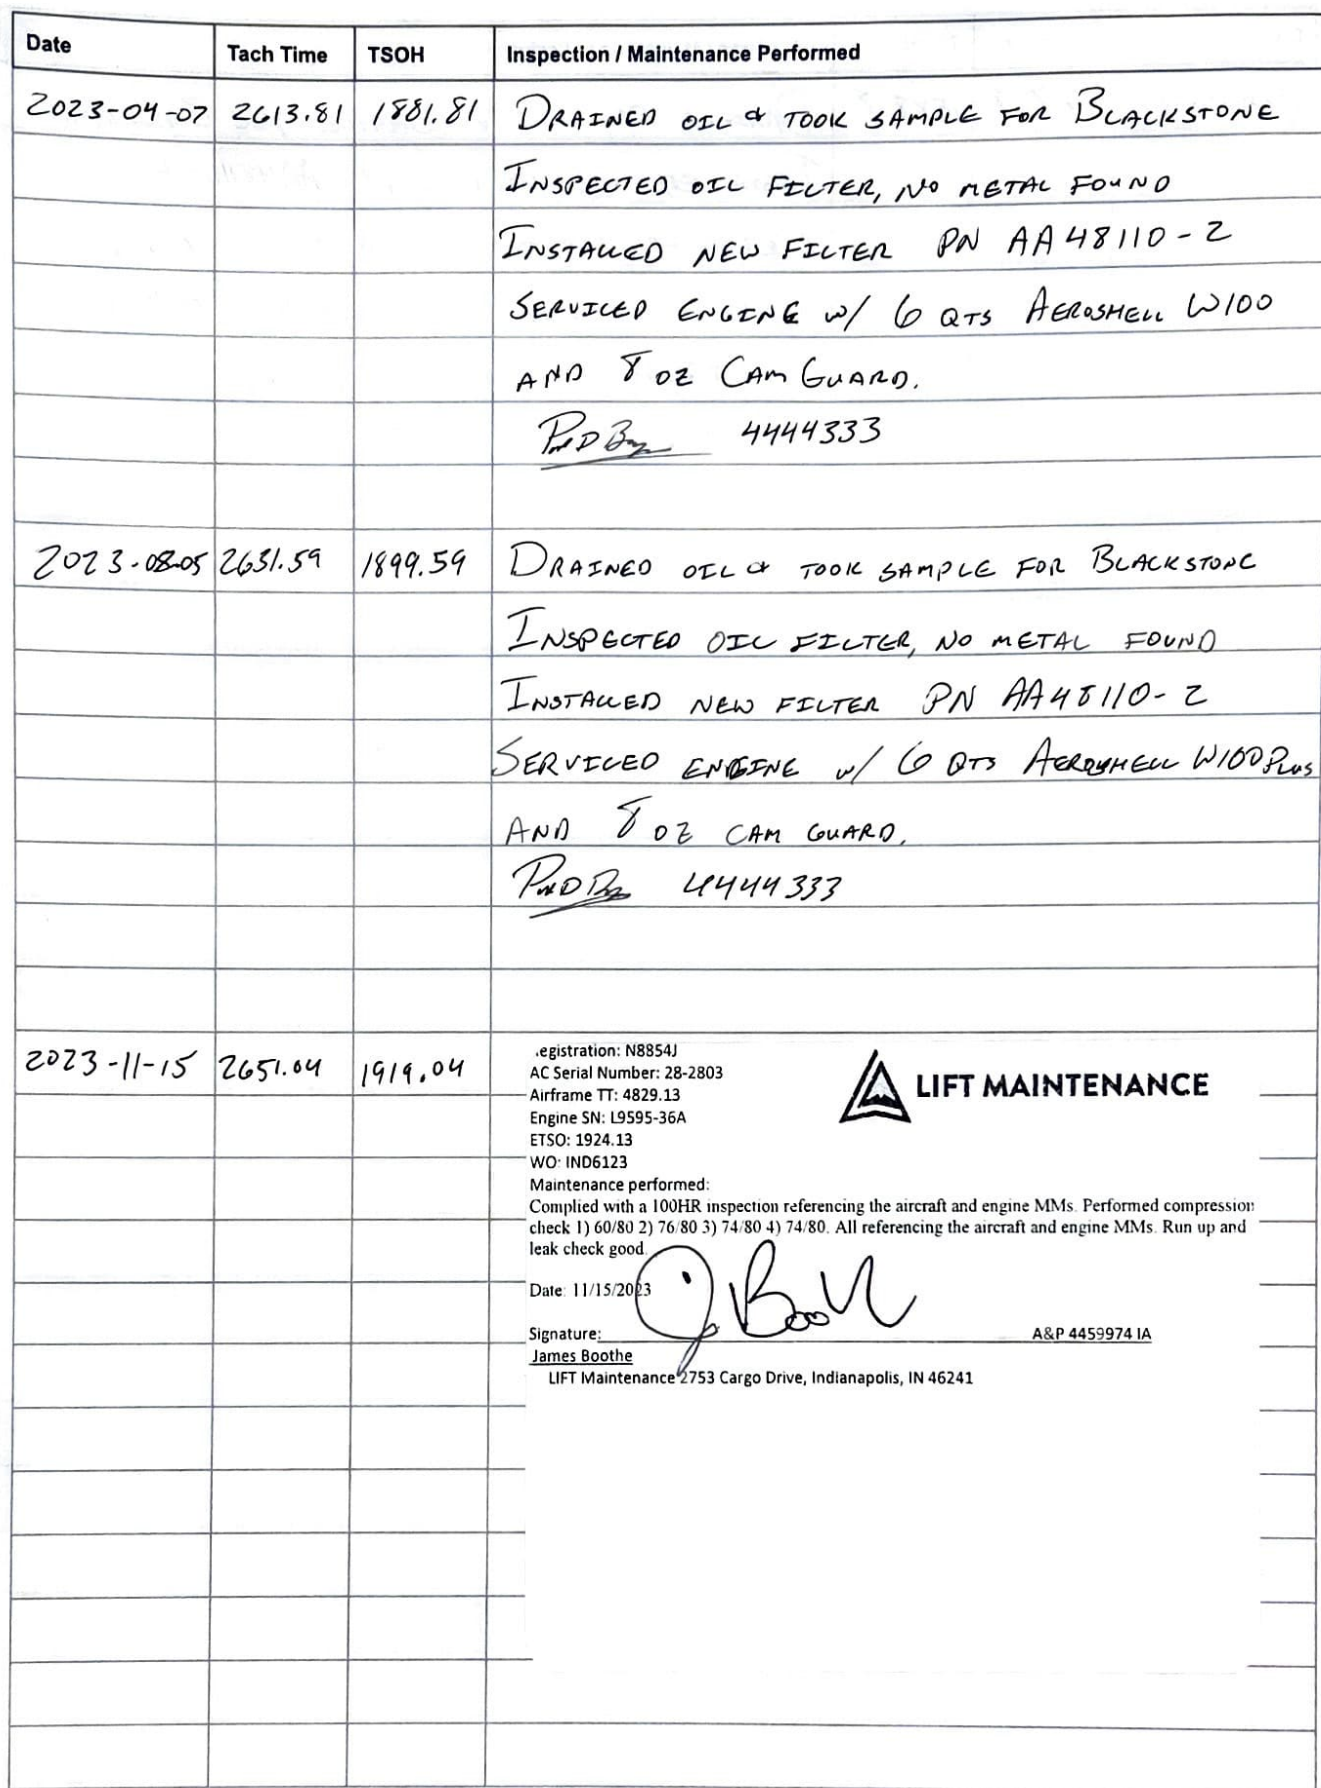 Date Tach Time TSOH Inspection / Maintenance Performed
2023-04-07 2613.81 1881.81 DRAINED OIL & TOOK SAMPLE FOR BLACKSTONE
INSPECTED OIL FILTER, NO METAL FOUND
INSTALLED NEW FILTER PN AA48110-2
SERVICED ENGINE w/ 6 QTS AEROSHELL W100
AND 8 OZ CAM GUARD.
4444333
2023-08-05 2631.59 1899.59 DRAINED OIL & TOOK SAMPLE FOR BLACKSTONE
INSPECTED OIL FILTER, NO METAL FOUND
INSTALLED NEW FILTER PN AA48110-2
SERVICED ENGINE w/ 6 QTS AEROSHELL W100 PLUS
AND 8 OZ CAM GUARD.
4444333
2023-11-15 2651.04 1919.04 .egistration: N8854J
AC Serial Number: 28-2803
LIFT MAINTENANCE
Airframe TT: 4829.13
Engine SN: L9595-36A
ETSO: 1924.13
WO: IND6123
Maintenance performed:
Complied with a 100HR inspection referencing the aircraft and engine MMs. Performed compression
check 1) 60/80 2) 76/80 3) 74/80 4) 74/80. All referencing the aircraft and engine MMs. Run up and
leak check good.
Date: 11/15/2023
Signature: J Booth A&P 4459974 IA
James Boothe
LIFT Maintenance 2753 Cargo Drive, Indianapolis, IN 46241